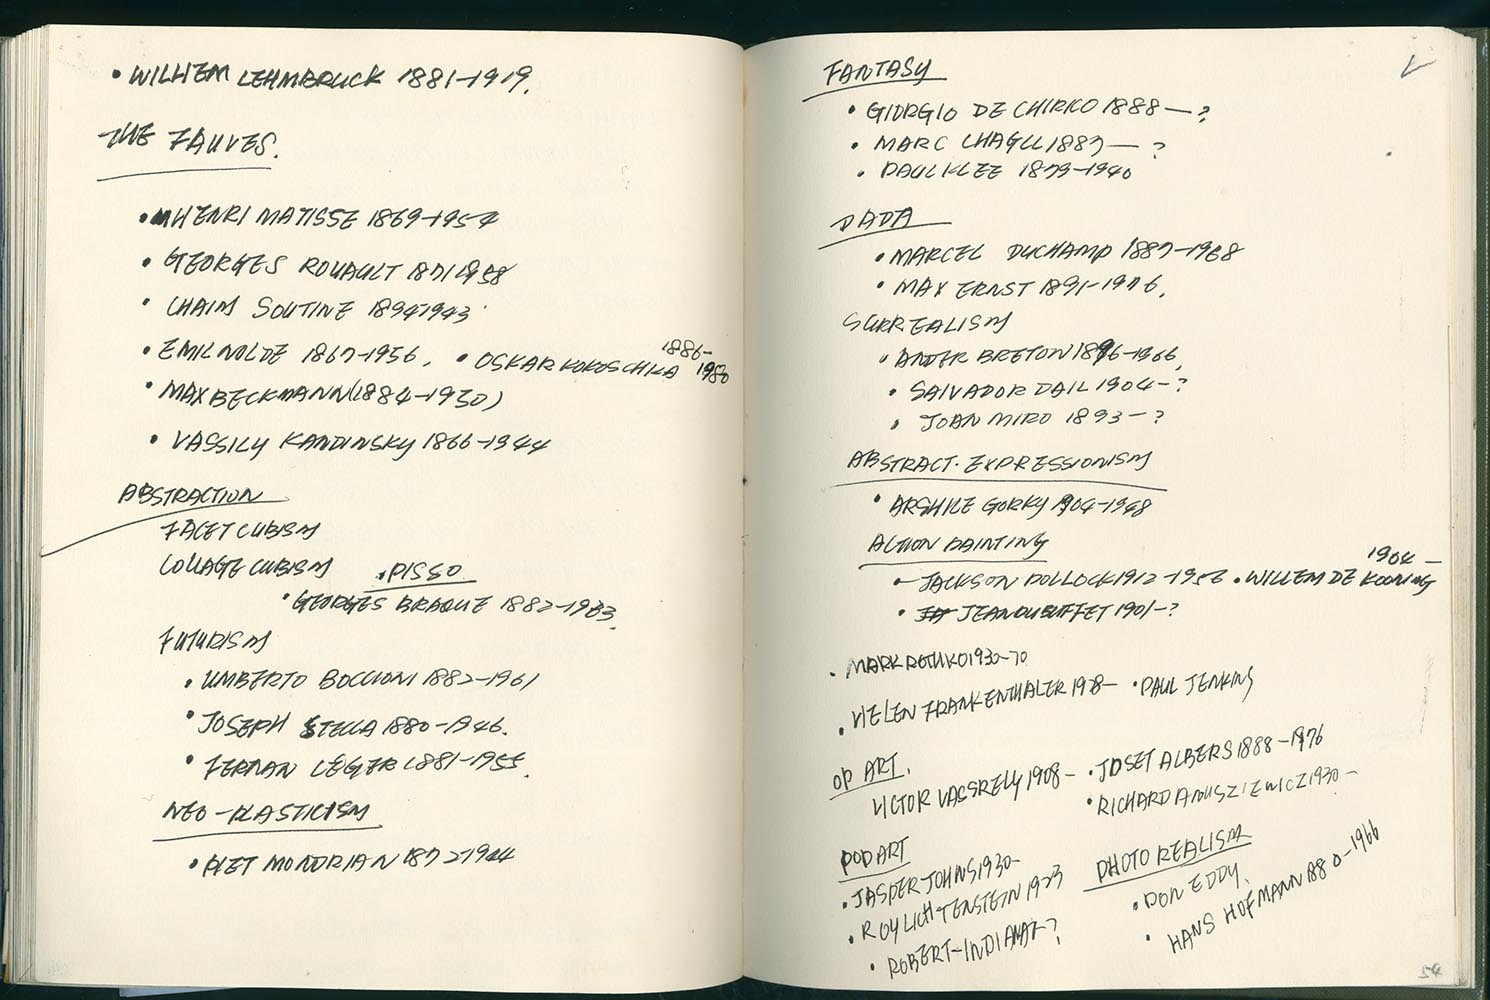 • WILHEM LEHMBRUCK 1881-1919.
THE FAUVES.
• HENRI MATISSE 1869-1954
• GEORGES ROUAULT 1871-1958
• CHAIM SOUTINE 1894-1943
• EMIL NOLDE 1867-1956. • OSKAR KOKOSCHKA 1886-1980
• MAX BECKMANN (1884-1950)
• VASSILY KANDINSKY 1866-1944
ABSTRACTION
FACET CUBISM
COLLAGE CUBISM • PISSO
• GEORGES BRAQUE 1882-1963.
FUTURISM
• UMBERTO BOCCIONI 1882-1961
• JOSEPH STELLA 1880-1946.
• FERNAN LEGER 1881-1955.
NEO-PLASTICISM
• PIET MONDRIAN 1872-1944
FANTASY
• GIORGIO DE CHIRICO 1888-?
• MARC CHAGLL 1887-?
• PAUL KLEE 1879-1940
DADA
• MARCEL DUCHAMP 1887-1968
• MAX ERNST 1891-1976.
SURREALISM
• ANDER BRETON 1896-1966.
• SALVADOR DAIL 1904-?
• JOAN MIRO 1893-?
ABSTRACT. EXPRESSIONISM
• ARSHILE GORKY 1904-1948
ACTION PAINTING
• JACKSON POLLOCK 1912-1956 • WILLEM DE KOONING 1904-
• JEAN DUBUFFET 1901-?
• MARK ROTHKO 1930-70
• HELEN FRANKENTHALER 1928- • PAUL JENKINS
OP ART.
VICTOR VASSRELY 1908- • JOSEF ALBERS 1888-1976
• RICHARD ANUSZIEWICZ 1930-
POP ART
• JASPER JOHNS 1930-
• ROY LICHTENSTEIN 1923
• ROBERT-INDIANA-?
PHOTO REALISM
• DON EDDY.
• HANS HOFMANN 1880-1966
54